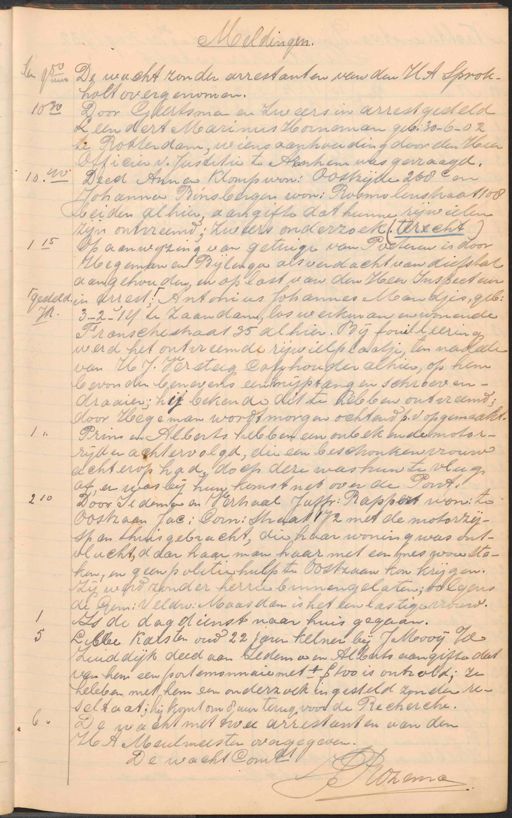 Meldingen.
De wacht zonder arrestanten van den H A Sprok-
holt overgenomen.
10 30 Door Geertsma en Zweers in arrest gesteld
Leendert Marinus Horneman geb. 30-6-02
te Rotterdam, wiens aanhouding door den Heer
Officier v. Justitie te Arnhem was gevraagd.
10 Deed Anna Klomp won: Oostzijde 268 en
Johanna Rinsbergen won: Roomolenstraat 108
beiden alhier, aangifte dat hunne rijwielen
zijn ontvreemd; Zweers onderzoek (terecht)
1 15 Op aanwijzing van getuige van Pelteren is door
Hegeman en Bijlenga als verdacht van diefstal
aangehouden, en op last van den Heer Inspecteur
gesteld in arrest: Antonius Johannes Mandjis, geb:
3-2-'14 te Zaandam, los werkman wonende
Franschestraat 35 alhier. Bij fouilleering
werd het ontvreemde rijwielplaatje, ten nadeele
van H J. Versteg caféhouder alhier, op hem
bevonden benevens een nijptang en schroeven-
draaier; hij bekende dit te hebben ontvreemd;
door Hegeman wordt morgen ochtend p.v opgemaakt.
1 " Prins en Alberts hebben een onbekende motor-
rijder achtervolgd, die een beschonken vrouw
achterop had, doch deze was hun te vlug
af, er was bij hun komst net over de Pont.
2 10 Door Iedema en Verhaal Juffr: Rappert won: te
Oostzaan Jac: Corn: Straat 172 met de motorzij-
span thuis gebracht, die haar woning was ont-
vlucht, daar haar man haar met een mes wou ste-
ken, en geen politiehulp te Oostzaan kon krijgen.
Zij werd zonder herrie binnengelaten, volgens
de Gem: Veldw: Maasdam is het een lastige vrouw.
1 Is de dagdienst naar huis gegaan.
5 Karsten oud 22 jaren kelner bij J Mooij Jd
Zuiddijk deed aan Iedema en Alberts aangifte dat
van hem een portemonnaie met ± f 100 is ontrold; ze
hebben met hem een onderzoek ingesteld zonder re-
sultaat; hij komt om 8 uur terug, voor de Recherche.
6 " De wacht met twee arrestanten aan den
H A Meulmeester overgegeven.
De wacht Comdt
Rozema